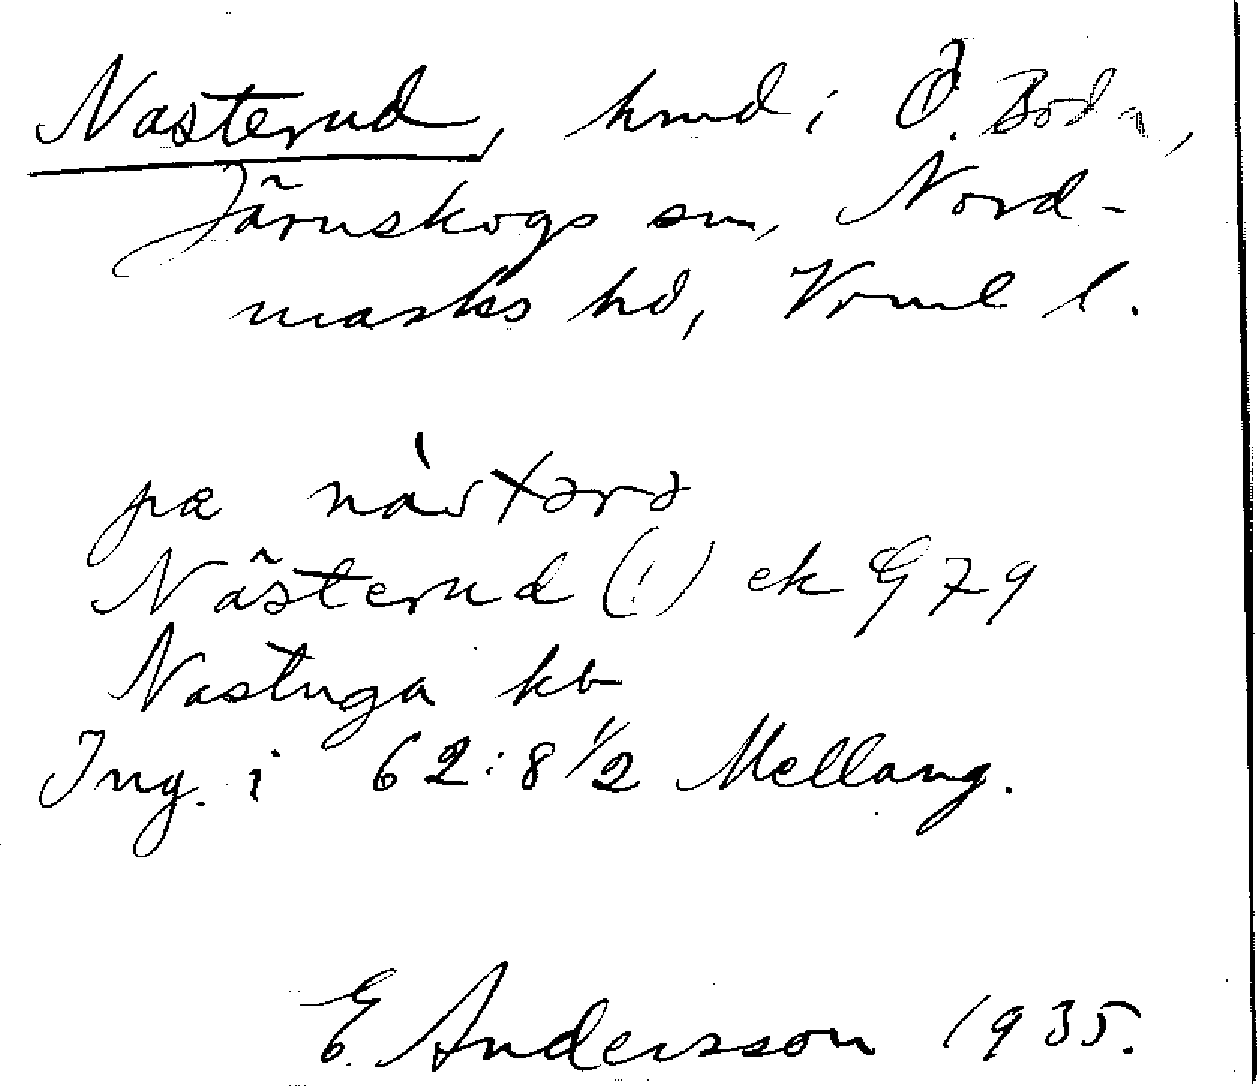 Nasterud, hmd i Ö. Boda,
Järnskogs sn, Nord-
marks hd, Vrml l.
pæ
Nästerud (!) ek G 79
Nastuga kb
Ing. i 62:8 1/2 Mellang.
E. Andersson 1935.